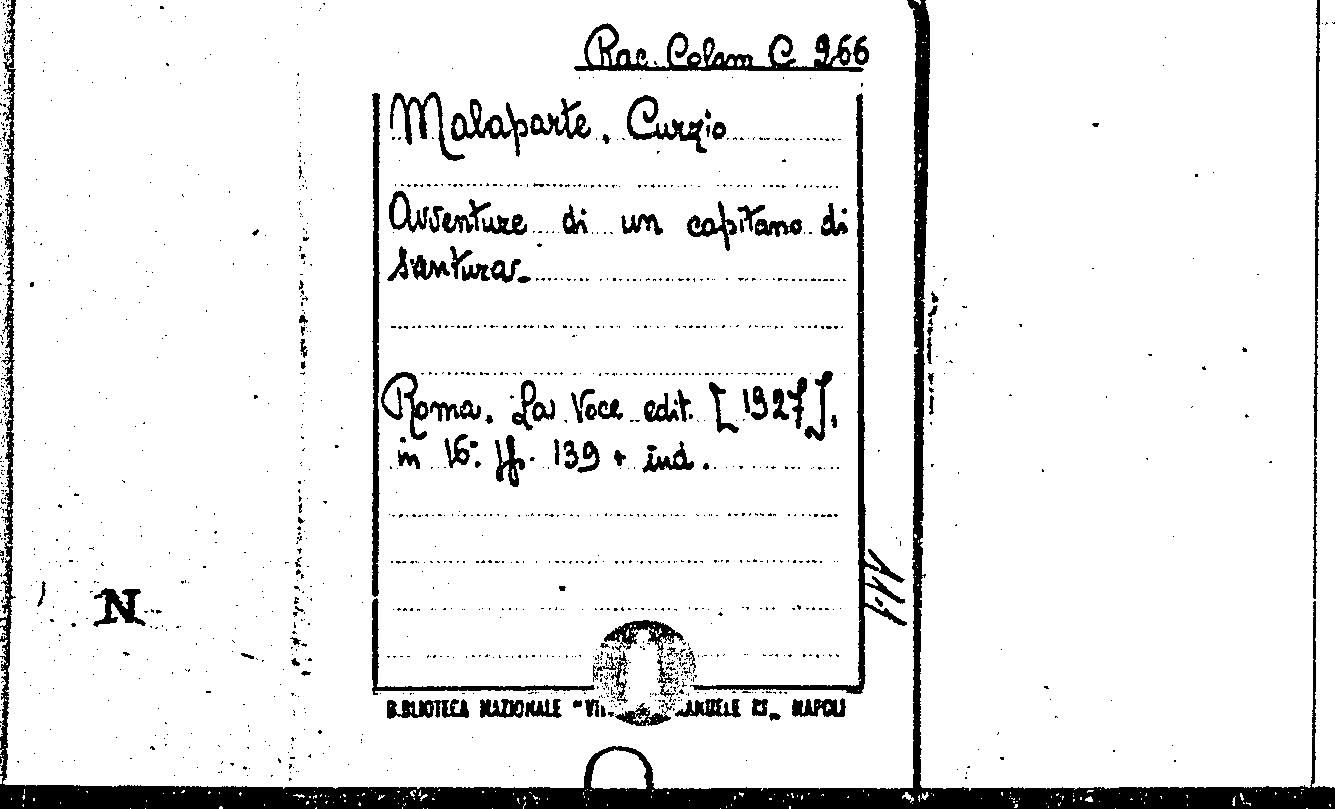 Rac. Colom C 266
Malaparte, Curzio
Avventure di un capitano di
sventura.
Roma. La Voce edit. [1927],
in 16°. pp. 139 + ind.
N
BIBLIOTECA NAZIONALE "VIT ANUELE III„ NAPOLI